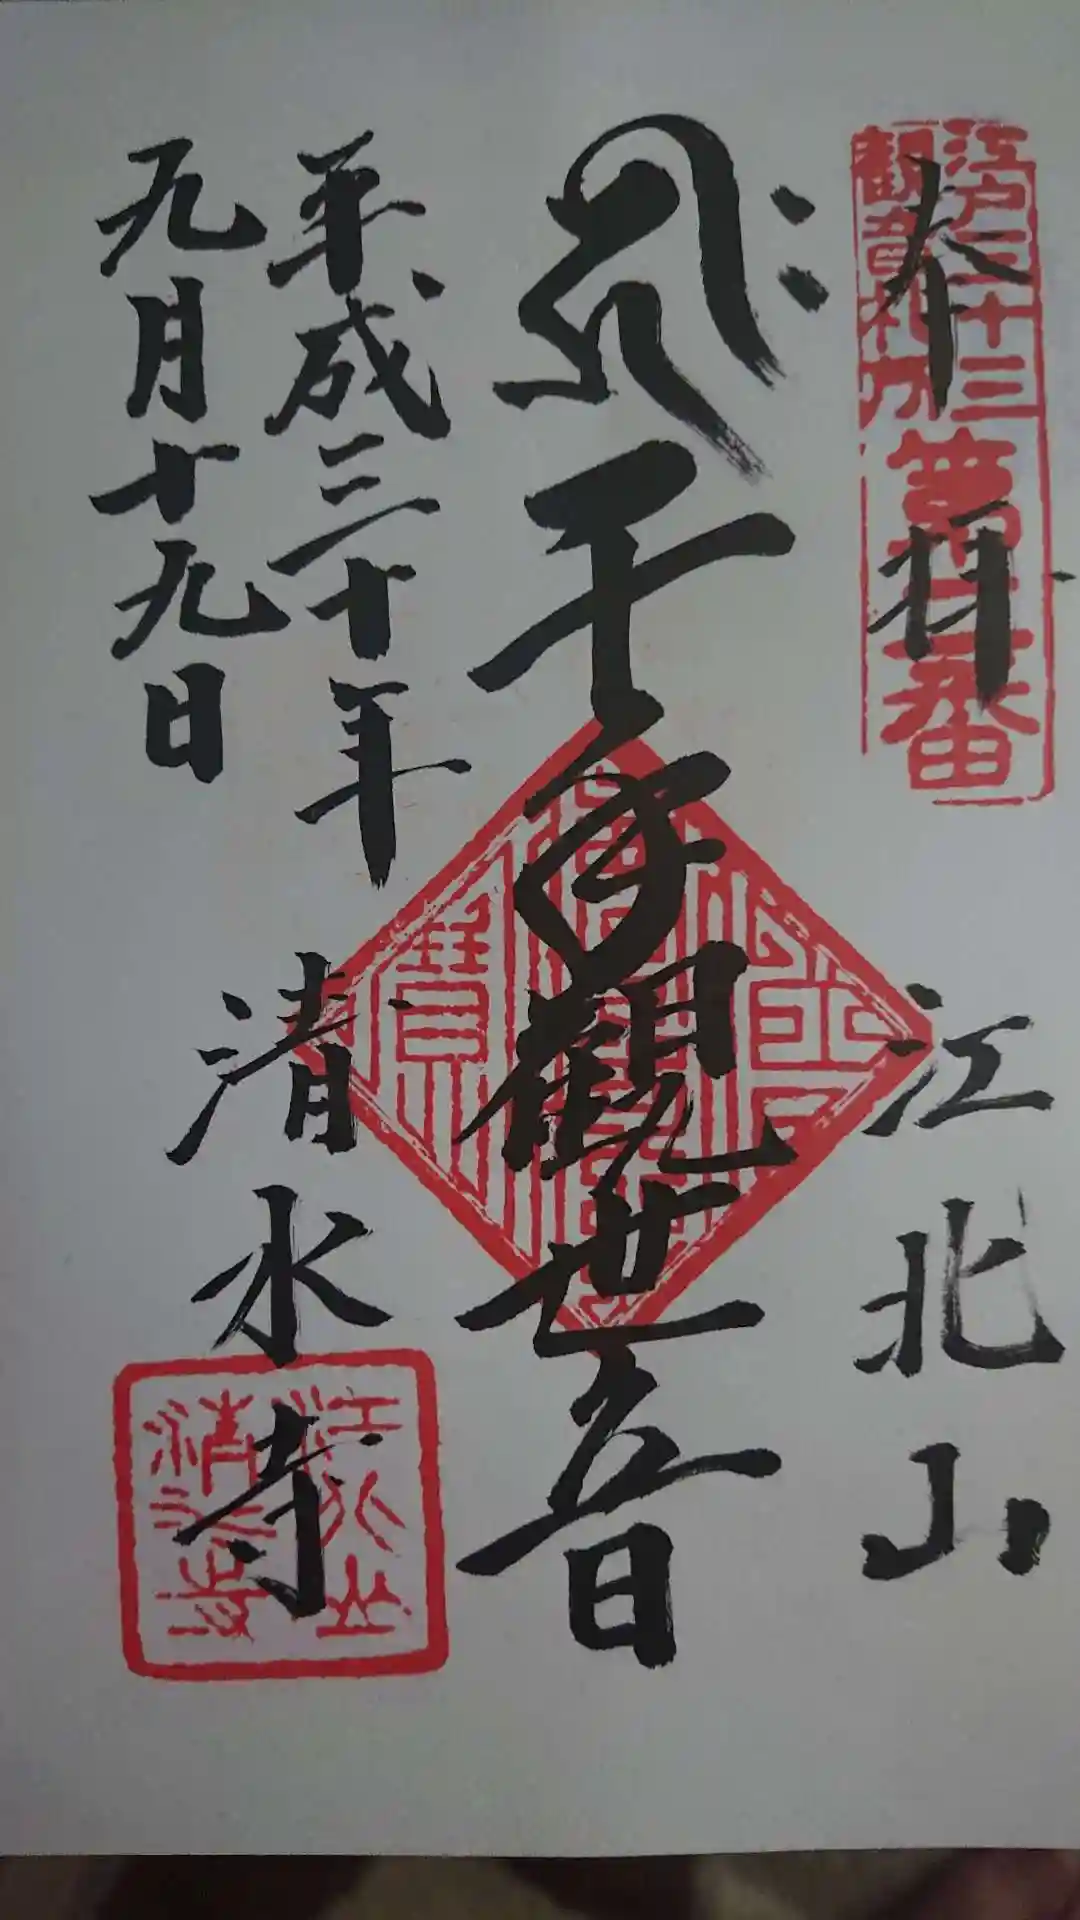 奉拝
江戸三十三
観音札所
第二番
江北山
千手觀世音
平成三十年
九月十九日
清水寺
江北山
清水寺